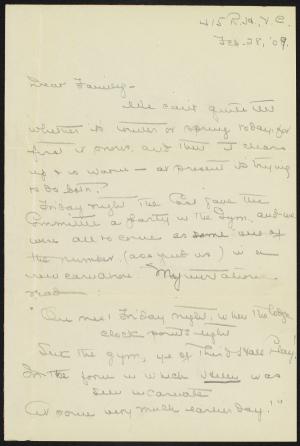 415 R. H., V. C.
Feb. 28, '09.
Dear Family-
We can't quite tell
whether is winter or spring today, for
first it snows, and then it clears
up & is warm - at present is trying
to do both.
Friday night the Cast gave the
Committee a party in the Gym, and we
were all to come as some one of
the number, (assigned us) in a
new carnation. My invitation
read -
"On next Friday night, when the lodge
clock points eight
Seek the gym, ye of Third Hall Play.
In the form in which Helen was
seen incarnate
At some very much earlier day!"